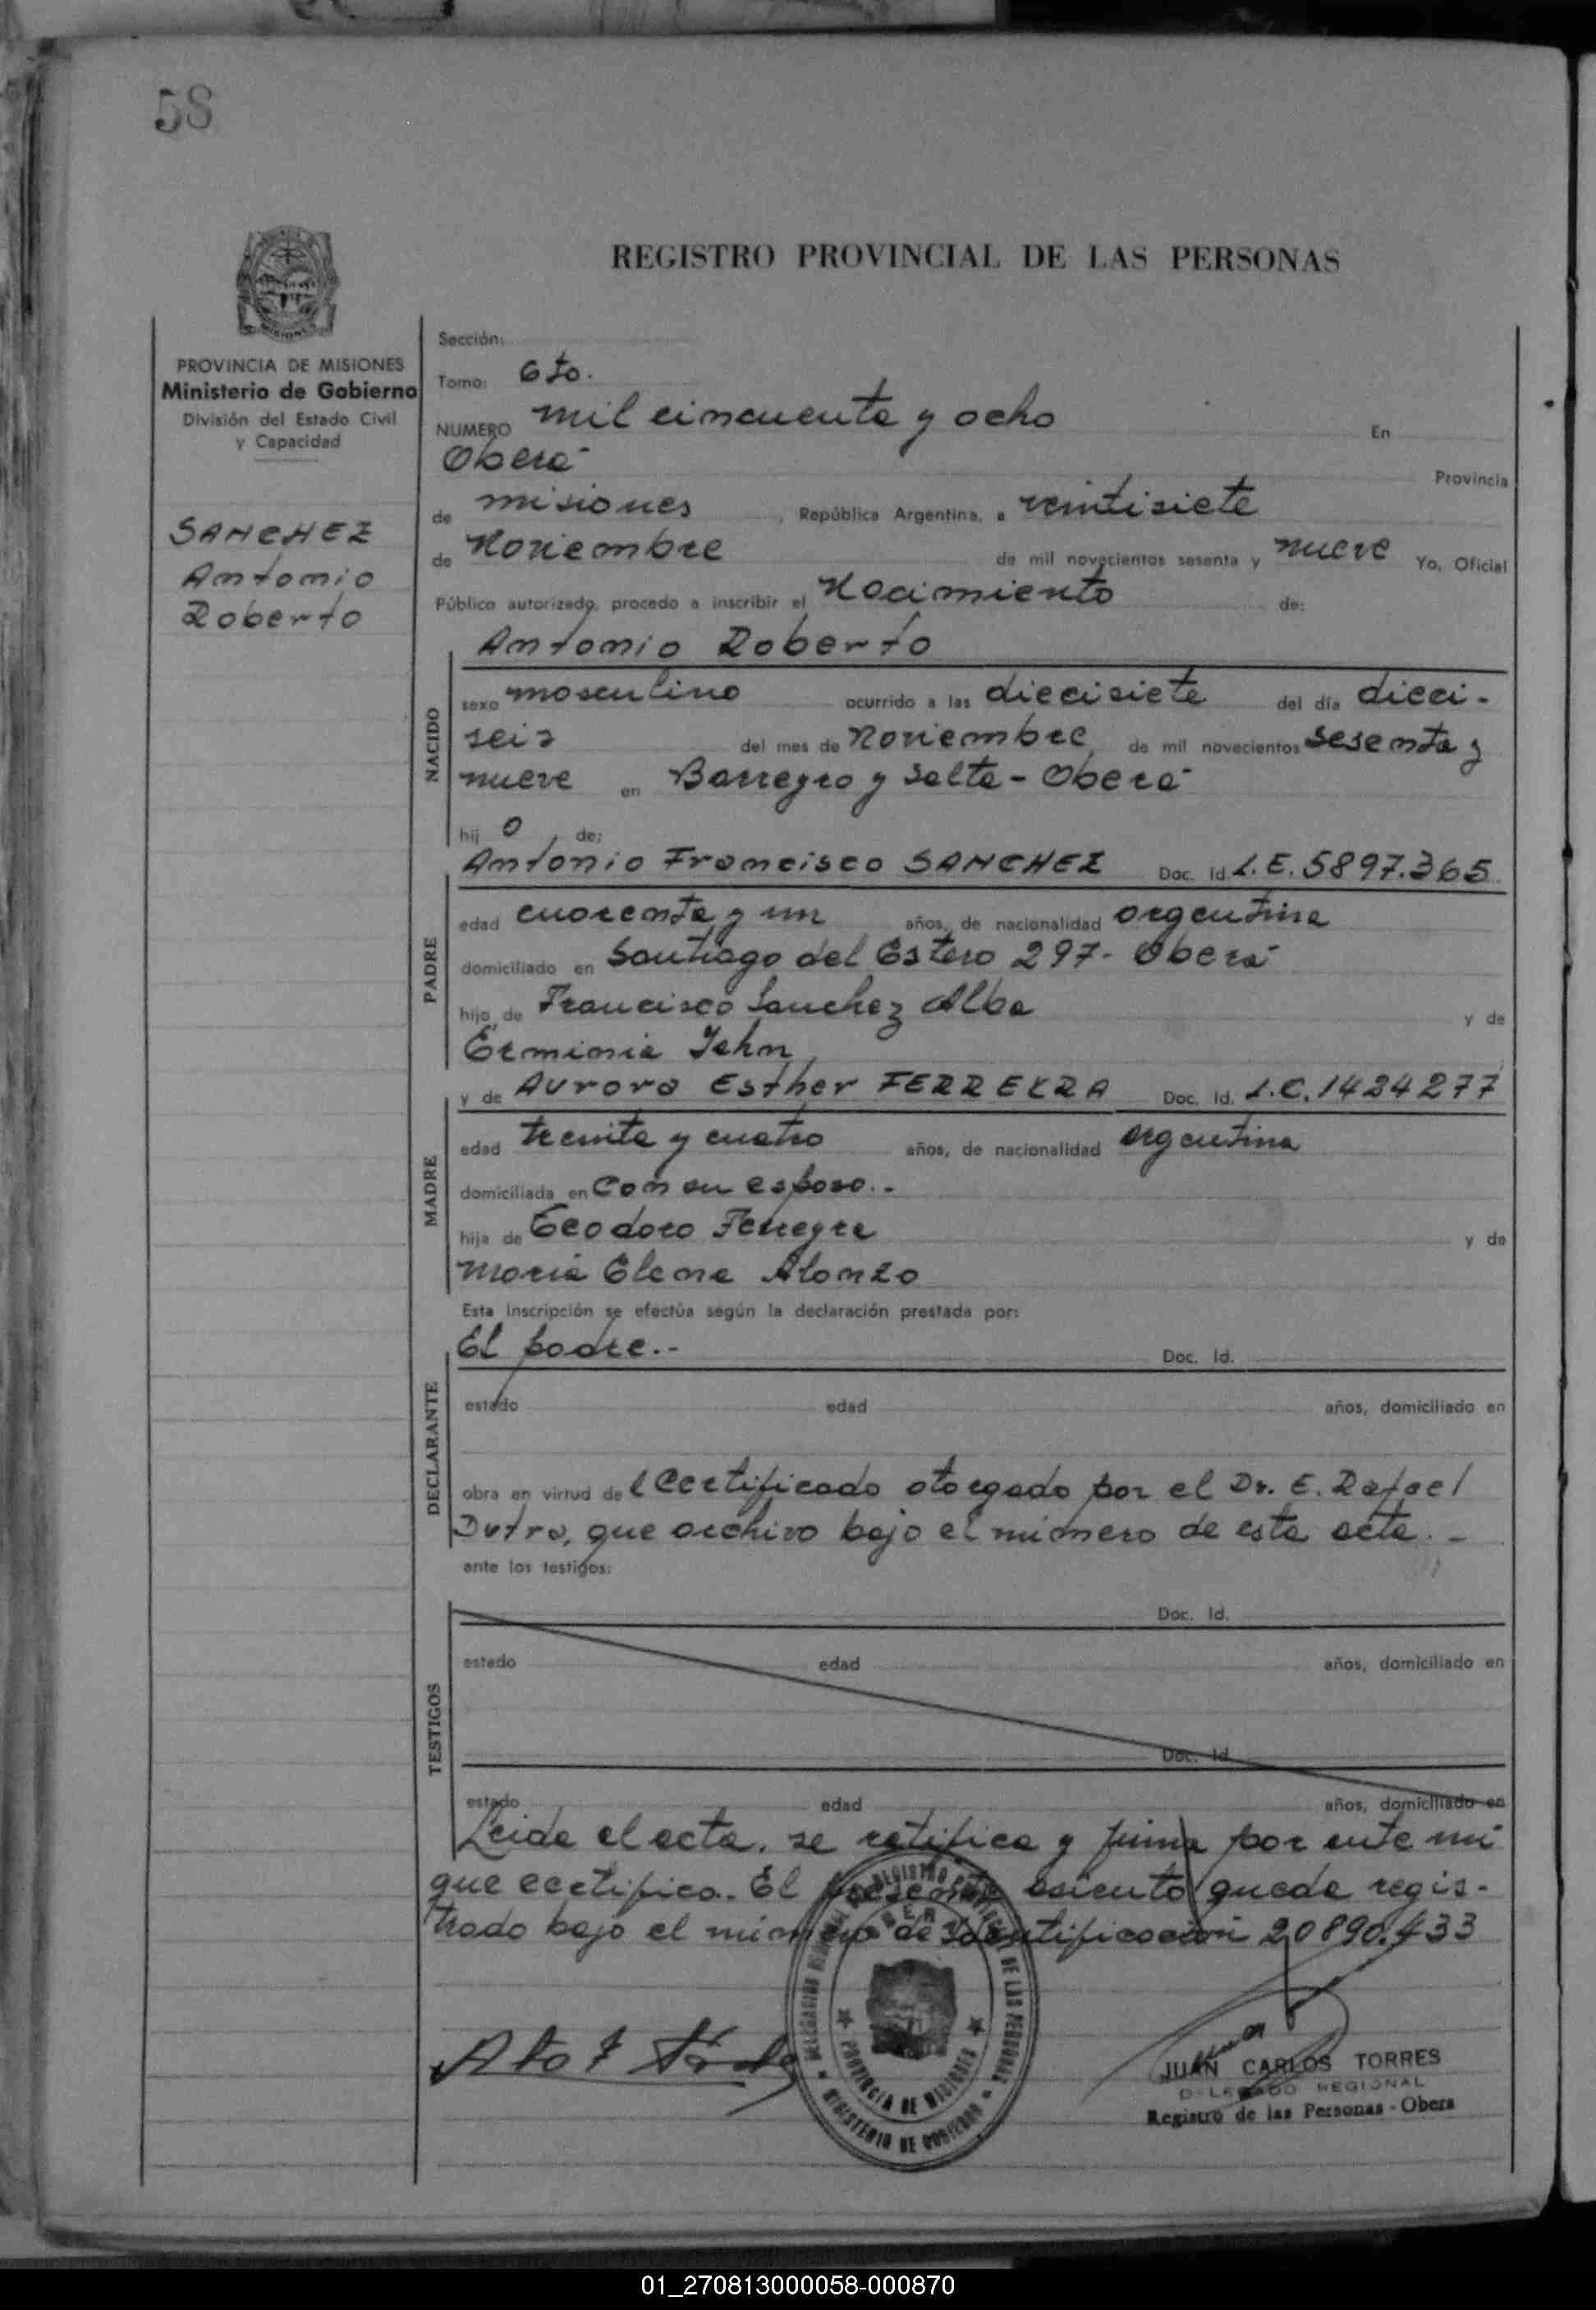 58
REGISTRO PROVINCIAL DE LAS PERSONAS
PROVINCIA DE MISIONES
Ministerio de Gobierno
División del Estado Civil
y Capacidad
SANCHEZ
Antonio
Roberto
Sección:
Tomo: 6to.
NUMERO mil cincuenta y ocho En
Oberá Provincia
de misiones, República Argentina, a veintisiete
de Noviembre de mil novecientos sesenta y nueve Yo, Oficial
Público autorizado, procedo a inscribir el Nacimiento de:
Antonio Roberto
NACIDO
sexo masculino ocurrido a las diecisiete del día dieci-
seis del mes de Noviembre de mil novecientos sesenta y
nueve en Barreyro y Salta - Oberá
hij o de:
Antonio Francisco SANCHEZ Doc. Id. L.E. 5897.365
PADRE
edad cuarenta y un años, de nacionalidad argentina
domiciliado en Santiago del Estero 297- Oberá
hijo de Francisco Sanchez Alba y de
Erminia Jahn
y de Aurora Esther FERREYRA Doc. Id. L.C. 1424277
MADRE
edad treinta y cuatro años, de nacionalidad argentina
domiciliada en con su esposo.-
hija de Teodoro Ferreyra y de
María Elena Alonzo
Esta inscripción se efectúa según la declaración prestada por:
El padre.- Doc. Id.
DECLARANTE
estado edad años, domiciliado en
obra en virtud de l certificado otorgado por el Dr. E. Rafael
Dutra, que archivo bajo el número de esta acta.-
ante los testigos:
TESTIGOS
Doc. Id.
estado edad años, domiciliado en
Doc. Id.
estado edad años, domiciliado en
Leida el acta, se ratifica y firma por ante mí
que certifico. El presente asiento queda regis-
trado bajo el número de Identificación 20890.433
REGISTRO PROVINCIAL DE LAS PERSONAS
PROVINCIA DE MISIONES
MINISTERIO DE GOBIERNO
JUAN CARLOS TORRES
DELEGADO REGIONAL
Registro de las Personas - Obera
01_270813000058-000870